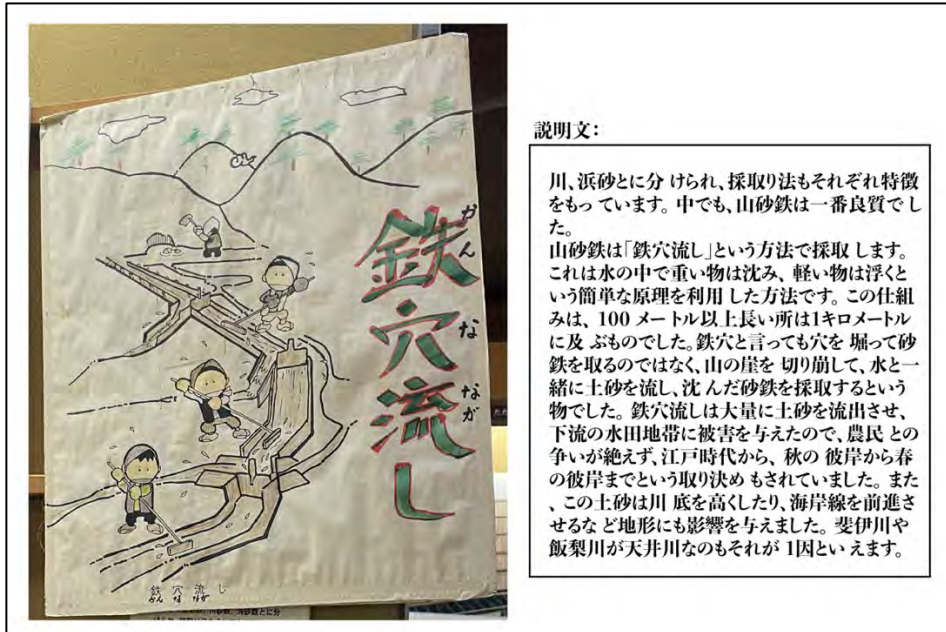 鉄穴流し
かん な なが
鉄 穴 流 し
かん な なが
説明文：
川、浜砂とに分 けられ、採取り法もそれぞれ特徴
をもっ ています。中でも、山砂鉄は一番良質でし
た。
山砂鉄は「鉄穴流し」という方法で採取 します。
これは水の中で重い物は沈み、軽い物は浮くと
いう簡単な原理を利用 した方法です。この仕組
みは、100 メートル以上長い所は1キロメートル
に及 ぶものでした。鉄穴と言っても穴を 堀って砂
鉄を取るのではなく、山の崖を 切り崩して、水と一
緒に土砂を流し、沈 んだ砂鉄を採取するという
物でした。鉄穴流しは大量に土砂を流出させ、
下流の水田地帯に被害を与えたので、農民 との
争いが絶えず、江戸時代から、秋の 彼岸から春
の彼岸までという取り決め もされていました。また
、この土砂は川 底を高くしたり、海岸線を前進さ
せるな ど地形にも影響を与えました。斐伊川や
飯梨川が天井川なのもそれが 1因といえます。